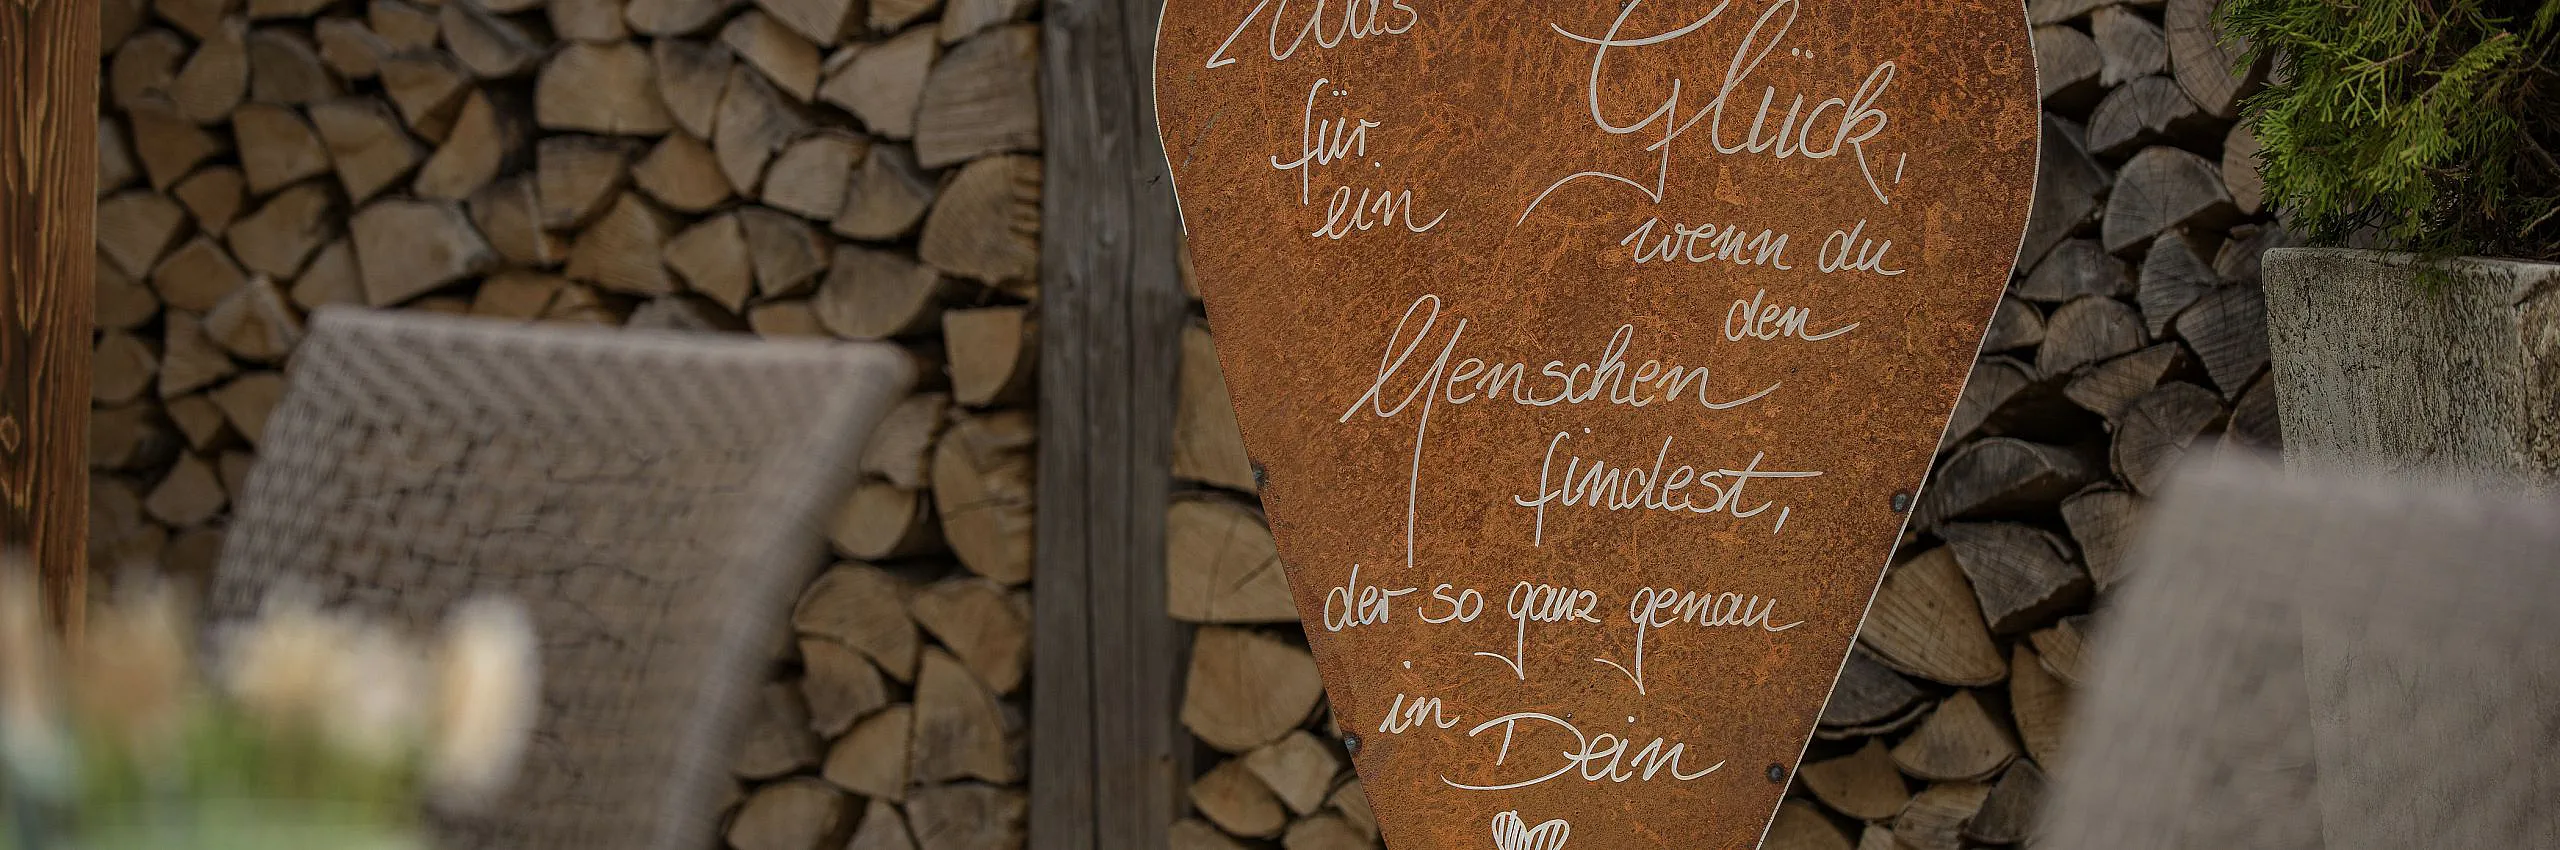 Was
für
ein
Glück,
wenn du
den
Menschen
findest,
der so ganz genau
in Dein